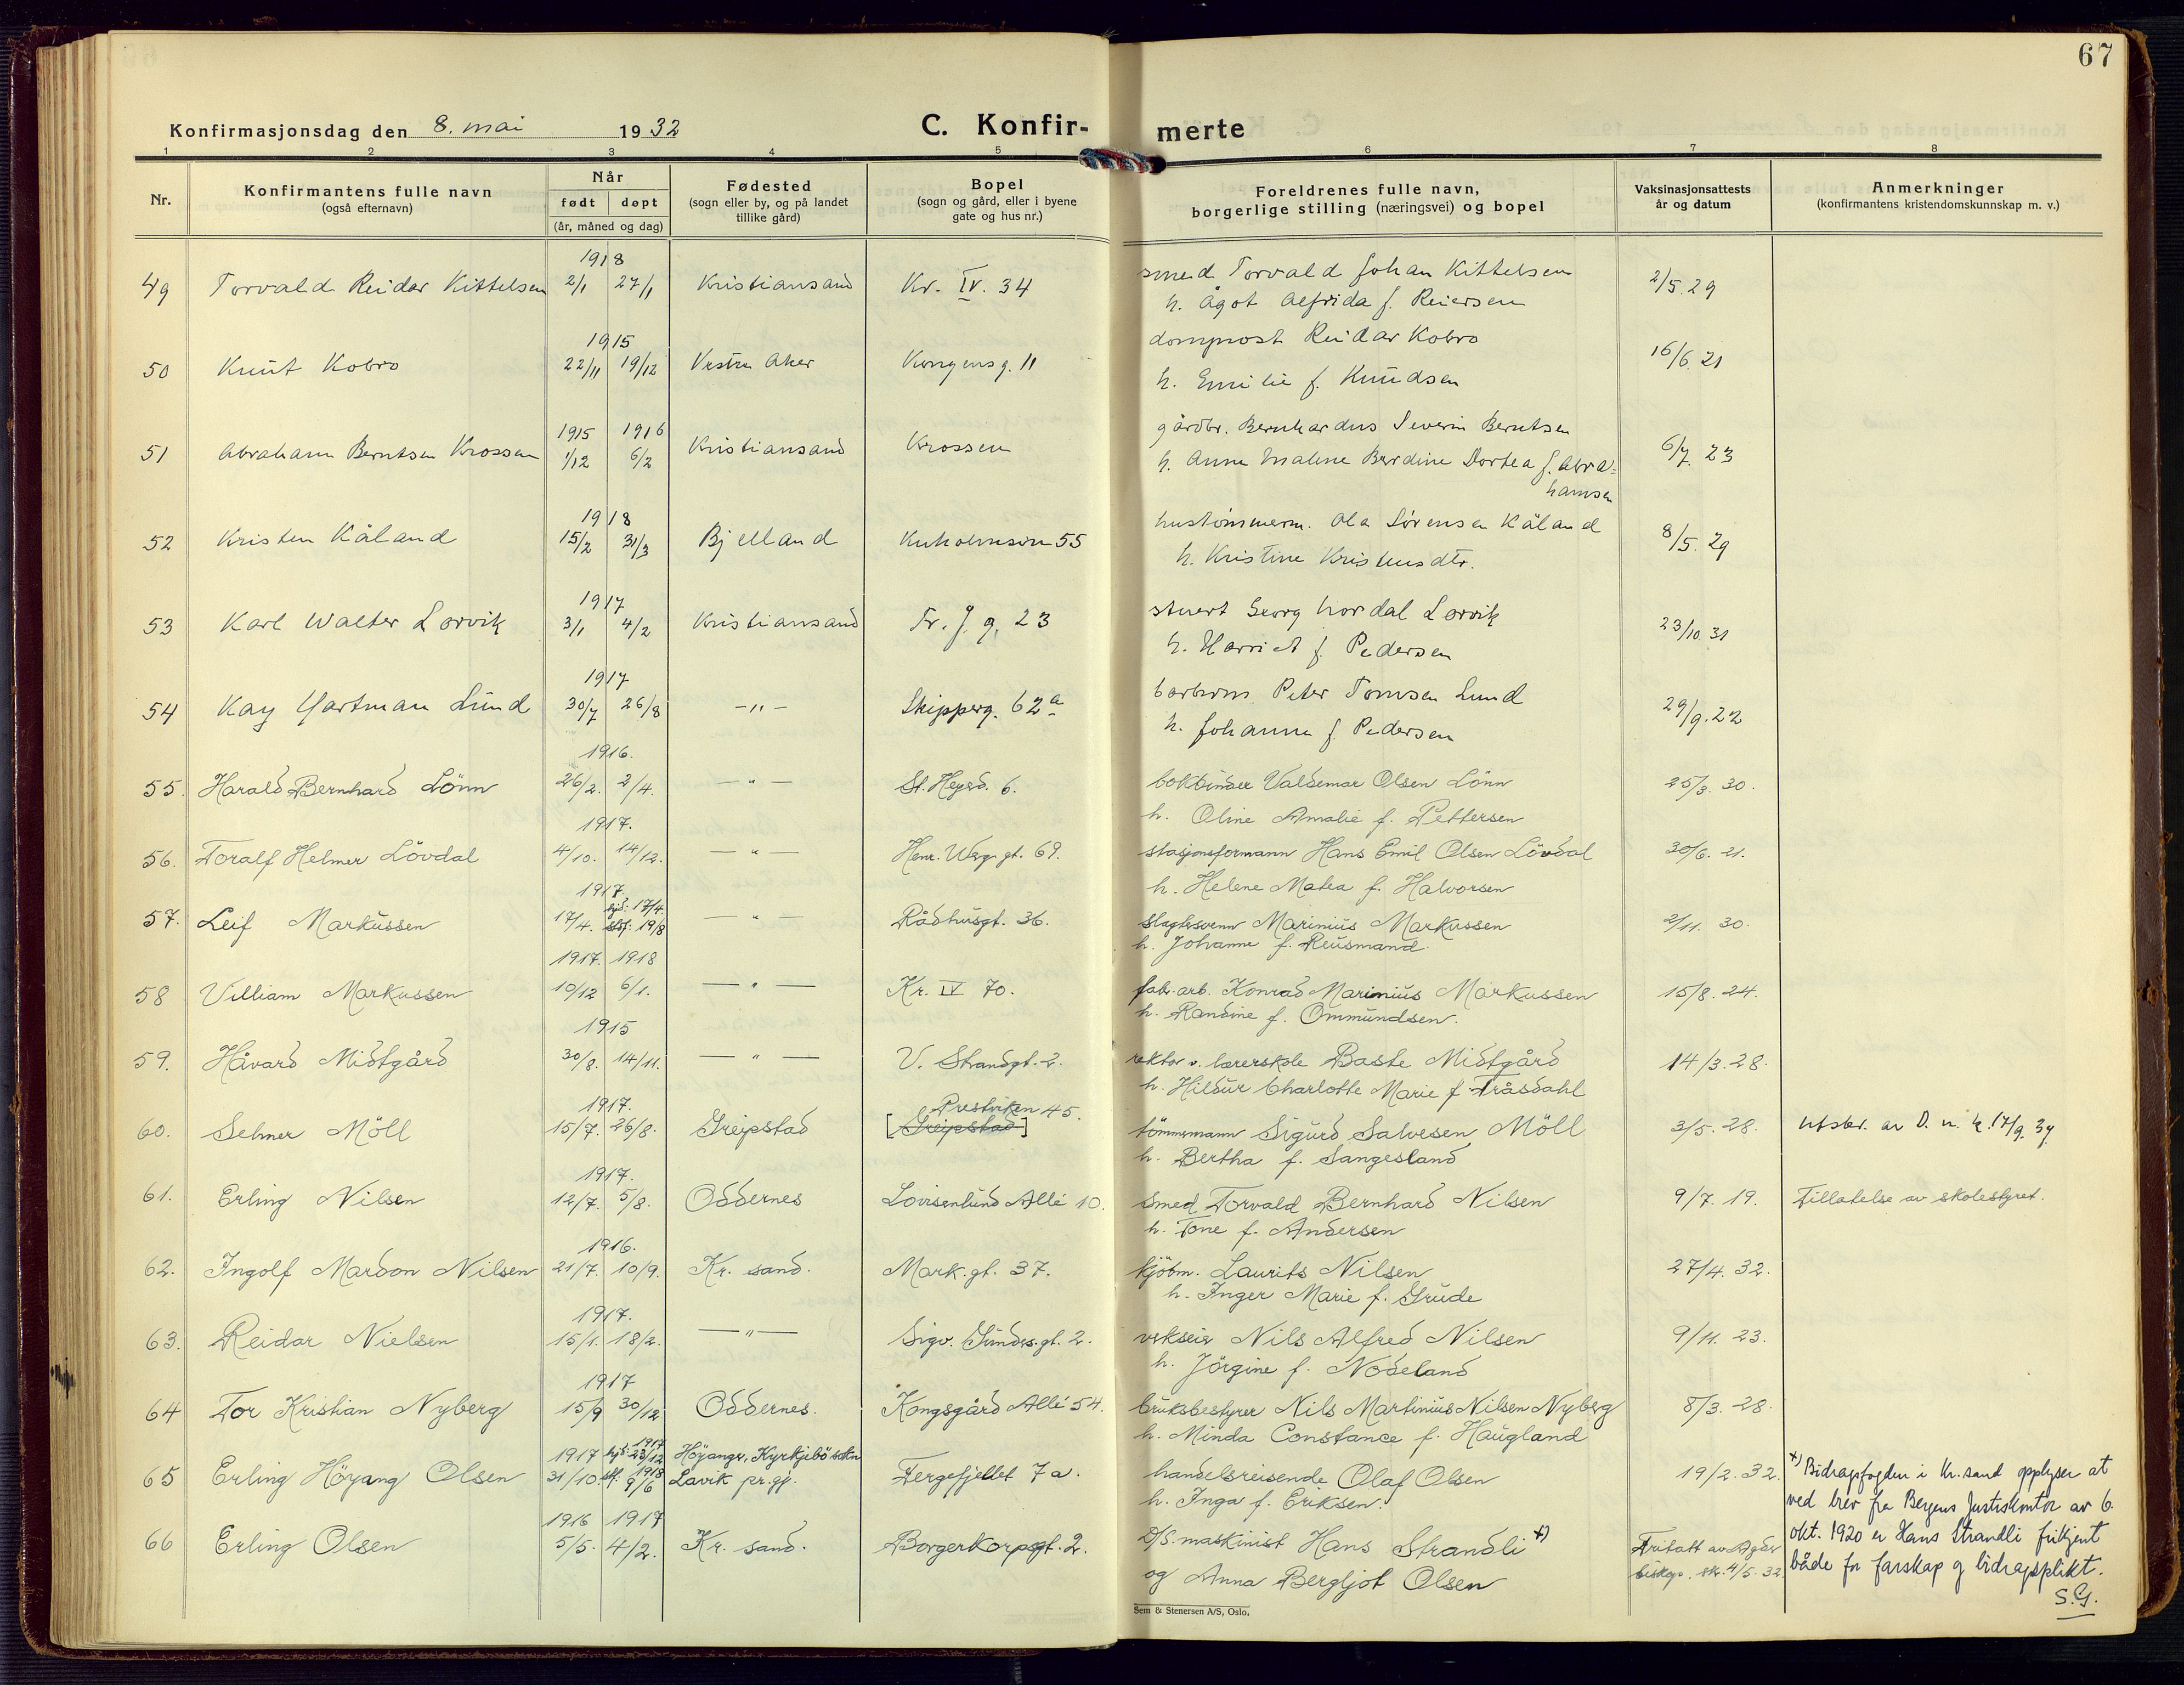 67
Konfirmasjonsdag den 8. mai 1932
C. Konfir- merte
1 2 3 4 5 6 7 8
Nr.
Konfirmantens fulle navn
(også efternavn)
Når
født døpt
(år, måned og dag)
Fødested
(sogn eller by, og på landet
tillike gård)
Bopel
(sogn og gård, eller i byene
gate og hus nr.)
Foreldrenes fulle navn,
borgerlige stilling (næringsvei) og bopel
Vaksinasjonsattests
år og datum
Anmerkninger
(konfirmantens kristendomskunnskap m. v.)
1918
49 Torvald Reidar Kittelsen 2/1 27/1 Kristiansand Kr. IV. 34 smed Torvald Johan Kittelsen 2/5. 29
h. Ågot Alfrida f. Reiersen
1915
50 Knut Kobro 22/11 19/12 Vestre Aker Kongensg. 11 domprost Reidar Kobro 16/6. 21
h. Emilie f. Knudsen
1915 1916
51 Abraham Berntsen Krossen 1/12 6/2 Kristiansand Krossen gårdbr. Bernhardus Severin Berntsen 6/7. 23
h. Anne Malene Berdine Dortea f. Abra=
hamsen
1918
52 Kristen Kåland 15/2 31/3 Bjelland Kuholmsvn 55 hustømmerm. Ola Sørensen Kåland 8/5. 29
h. Kristine Kristensdtr.
1917
53 Karl Walter Lervik 3/1 4/2 Kristiansand Tr. f. g. 23 stuert Georg Nordal Lervik 23/10. 31
h. Harriet f. Pedersen
1917
54 Kay Hartman Lund 30/7 26/8 -"- Skipperg. 62a Peter Tomsen Lund 29/9. 22
h. Johanne f. Pedersen
1916.
55. Harald Bernhard Lönn 26/2. 2/4. -"- St. Hejed. 6. bokbinder Valdemar Olsen Lönn 25/3. 30.
h. Oline Amalie f. Pettersen
1917.
56. Toralf Helmer Lövdal 4/10. 14/12. -"- Henr. Werg. gt. 69. stasjonsformann Hans Emil Olsen Lövdal 30/6. 21.
h. Helene Matea f. Halvorsen
1917.
57. Leif Markussen 17/4. hjd: 17/4. stf: 19/8 -"- Rådhusgt. 36. slagtersvenn Marinius Markussen 2/11. 30.
h. Johanne f. Reusmand.
1917. 1918
58 Villiam Markussen 10/12 6/1. -"- Kr. IV 70. fabr. arb. Konrad Marinius Markussen 15/8. 24.
h. Randine f. Ommundsen.
1915
59. Håvard Midtgård 30/8. 14/11. -"- V. Strandgt. 2. rektor v. lærerskole Baste Midtgård 14/3. 28.
h. Hildur Charlotte Marie f. Tråsdahl
1917. Prestviken 45.
60. Selmer Möll 15/7. 26/8. Greipstad [Greipstad] tömmermann Sigurd Salvesen Möll 3/5. 28. Utskr. av D. n. k. 17/9. 34
h. Bertha f. Sangesland
1917.
61. Erling Nilsen 12/7. 5/8. Oddernes Lovisenlund Allé 10. smed Torvald Bernhard Nilsen 9/7. 19. Tillatelse av skolestyret.
h. Tone f. Andersen
1916.
62. Ingolf Mardon Nilsen 21/7. 10/9. Kr. sand. Mark. gt. 37. kjöbm. Laurits Nilsen 27/4. 32.
h. Inger Marie f. Grude
1917.
63. Reidar Nielsen 15/1. 18/2. -"- Sigv. Sundes. gt. 2. vekseier Nils Alfred Nilsen 9/11. 23.
h. Jörgine f. Nodeland
1917
64 Tor Kristian Nyberg 15/9 30/12 Oddernes. Kongsgård Allé 54. bruksbestyrer Nils Martinius Nilsen Nyberg 8/3. 28.
h. Minda Constance f. Haugland
1917 hjd: 1917 23/12 Höyanger, Kyrkjebö sokn
65 Erling Höyang Olsen 31/10. stf: 1918 9/6 Lavik pr. gj. Tergefjellet 7a. handelsreisende Olaf Olsen 19/2. 32.
h. Inga f. Eriksen.
1916 1917
66 Erling Olsen 5/5. 4/2. Kr. sand. Borgerkorpsgt. 2. D/S. maskinist Hans Strandli x) Fritatt av Agder
og Anna Bergljot Olsen biskop. skr. 4/5. 32.
x) Bidragsfogden i Kr.sand opplyser at
ved brev fra Bergens Justiskontor av 6.
okt. 1920 er Hans Strandli frikjent
både for farskap og bidragsplikt.
S.G.
Sem & Stenersen A/S, Oslo.